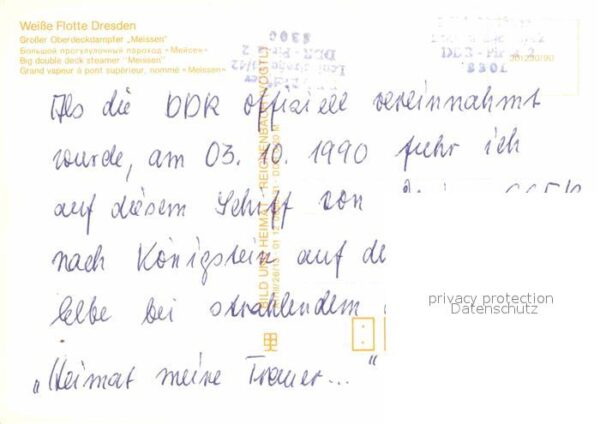 Weiße Flotte Dresden
Großer Oberdeckdampfer „Meissen"
Большой прогулулочный пароход «Мейсен»
Big double deck steamer "Meissen"
Grand vapeur à pont supérieur, nommé «Meissen»
8300
DDR - Pirna 2
301230/90
Als die DDR offiziell vereinnahmt
wurde, am 03. 10. 1990 fuhr ich
auf diesem Schiff von
nach Königstein auf de
Elbe bei strahlendem
„Heimat meine Trauer..."
BILD UND HEIMAT REICHENBACH (VOGTL)
privacy protection
Datenschutz